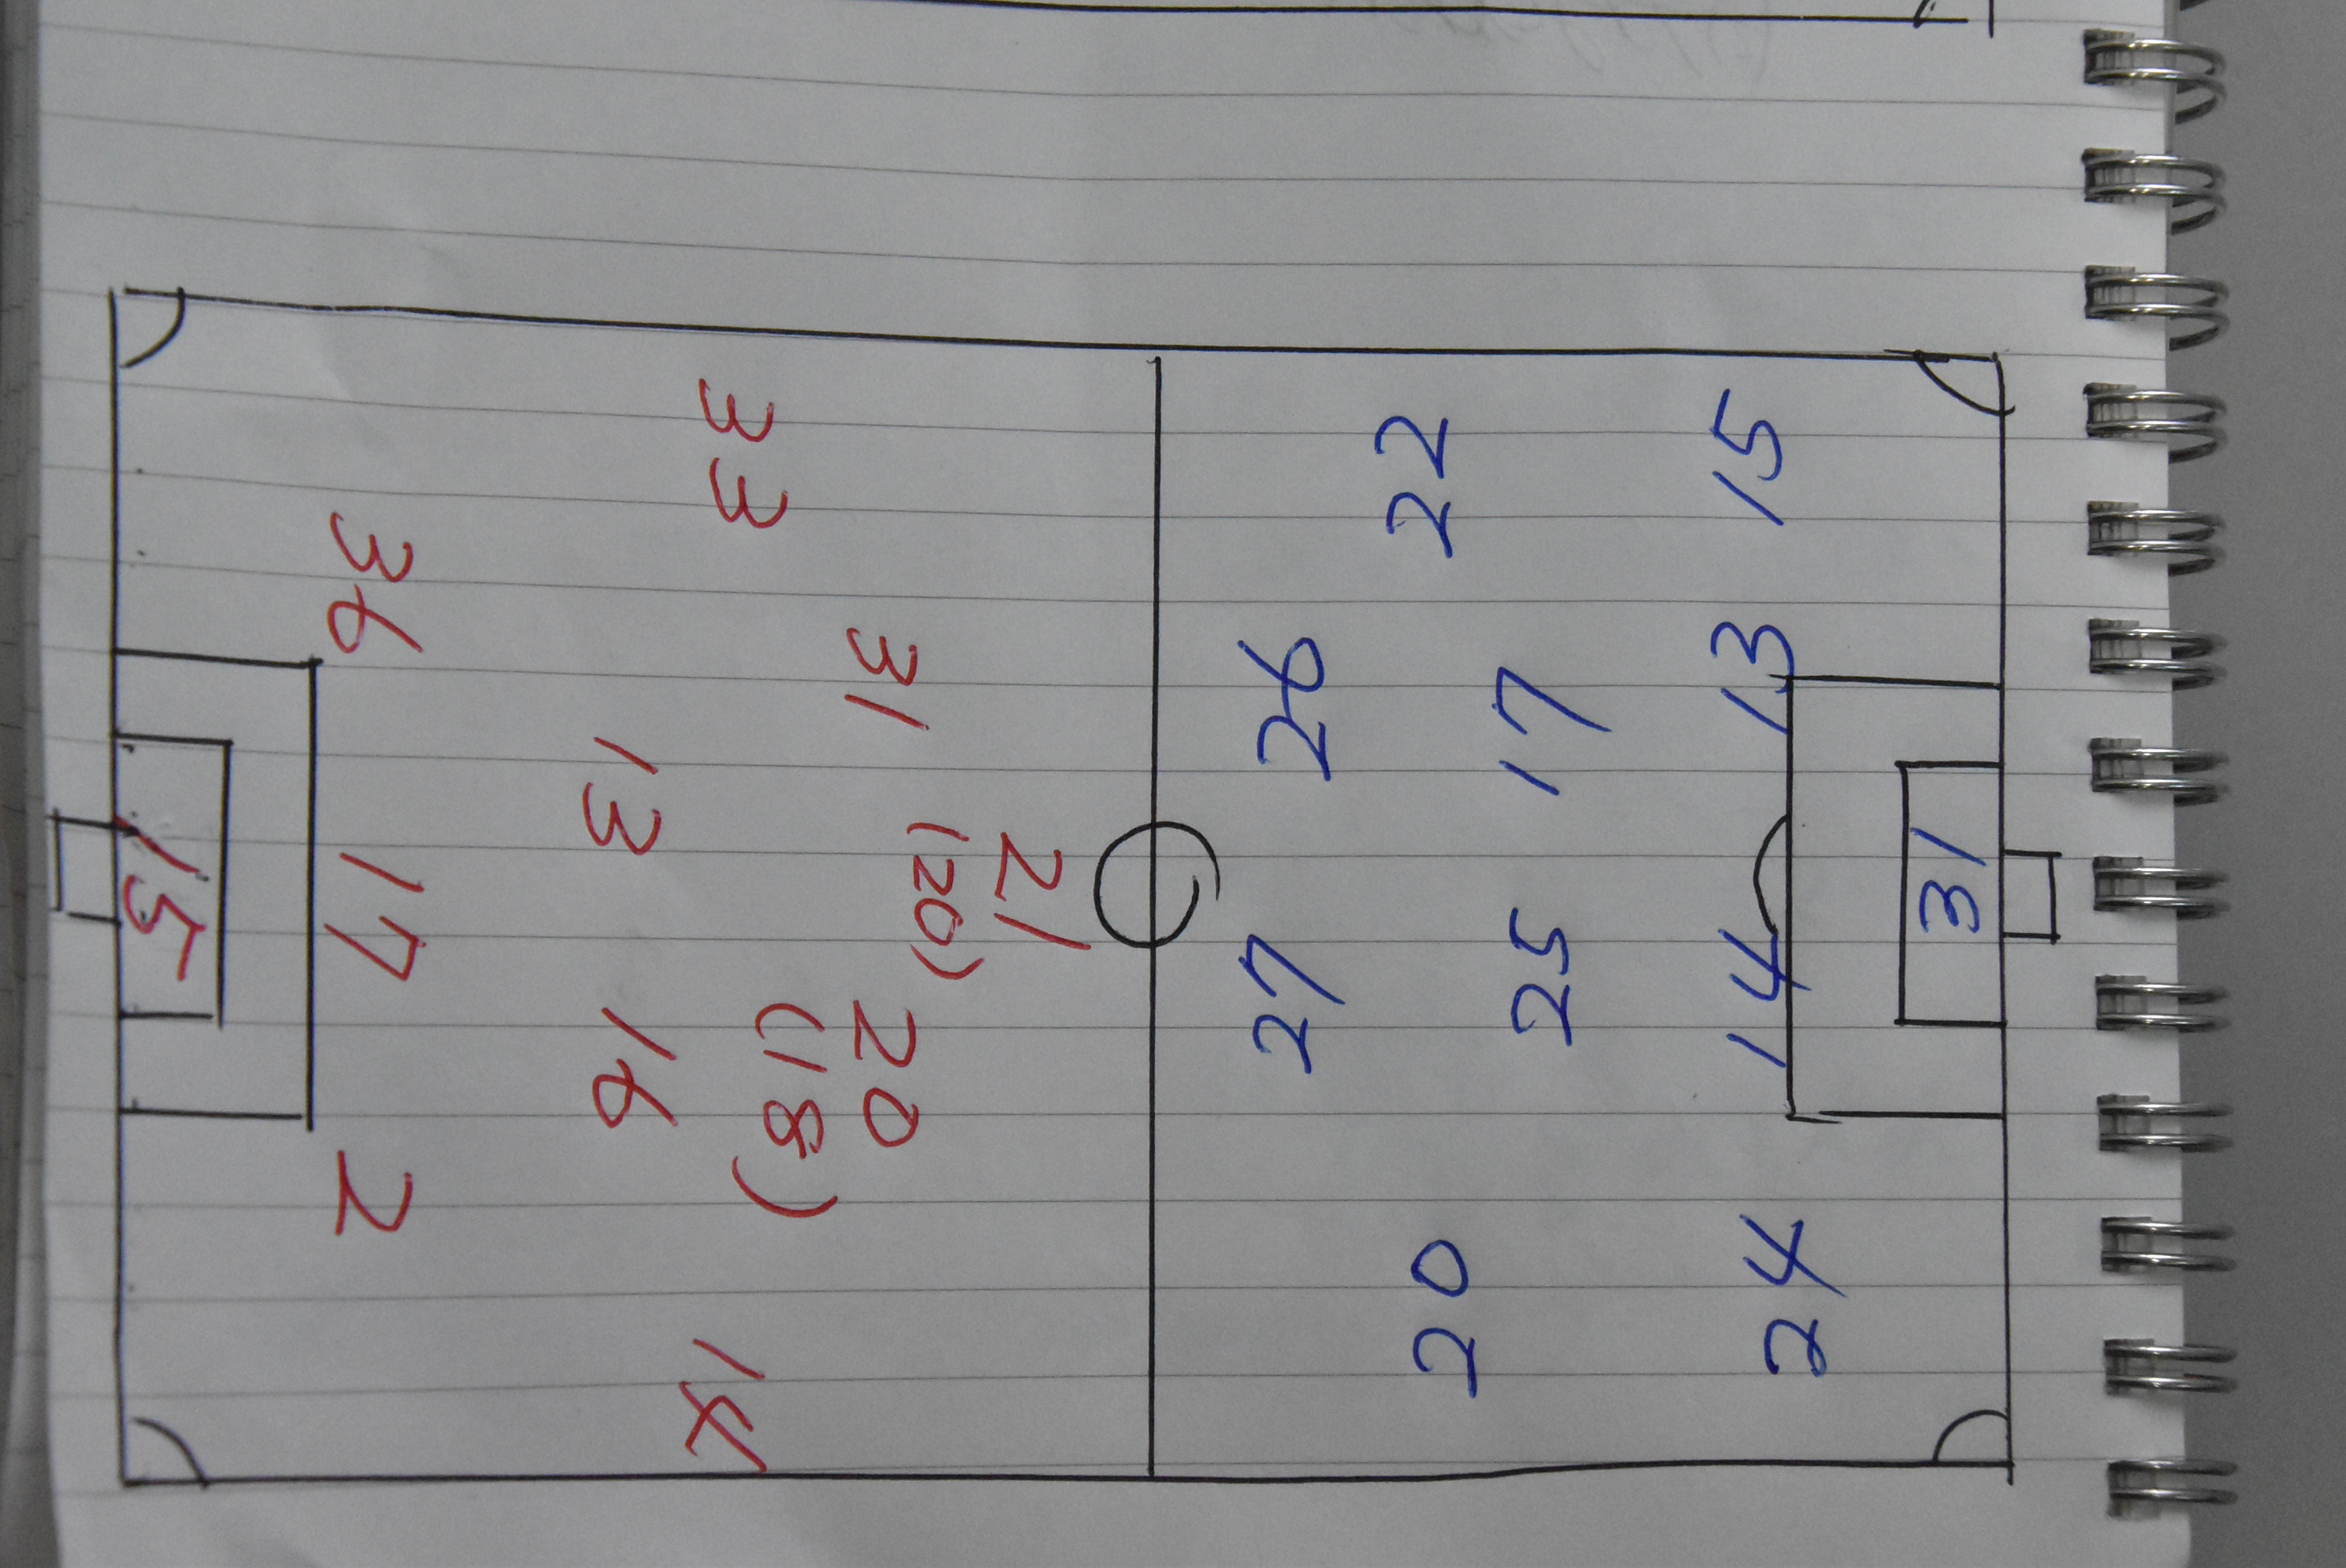 31
15 13 14 24
17 25
22 20
26 27
21
(20)
31 20
(18)
33 14
13 16
36 17 2
15